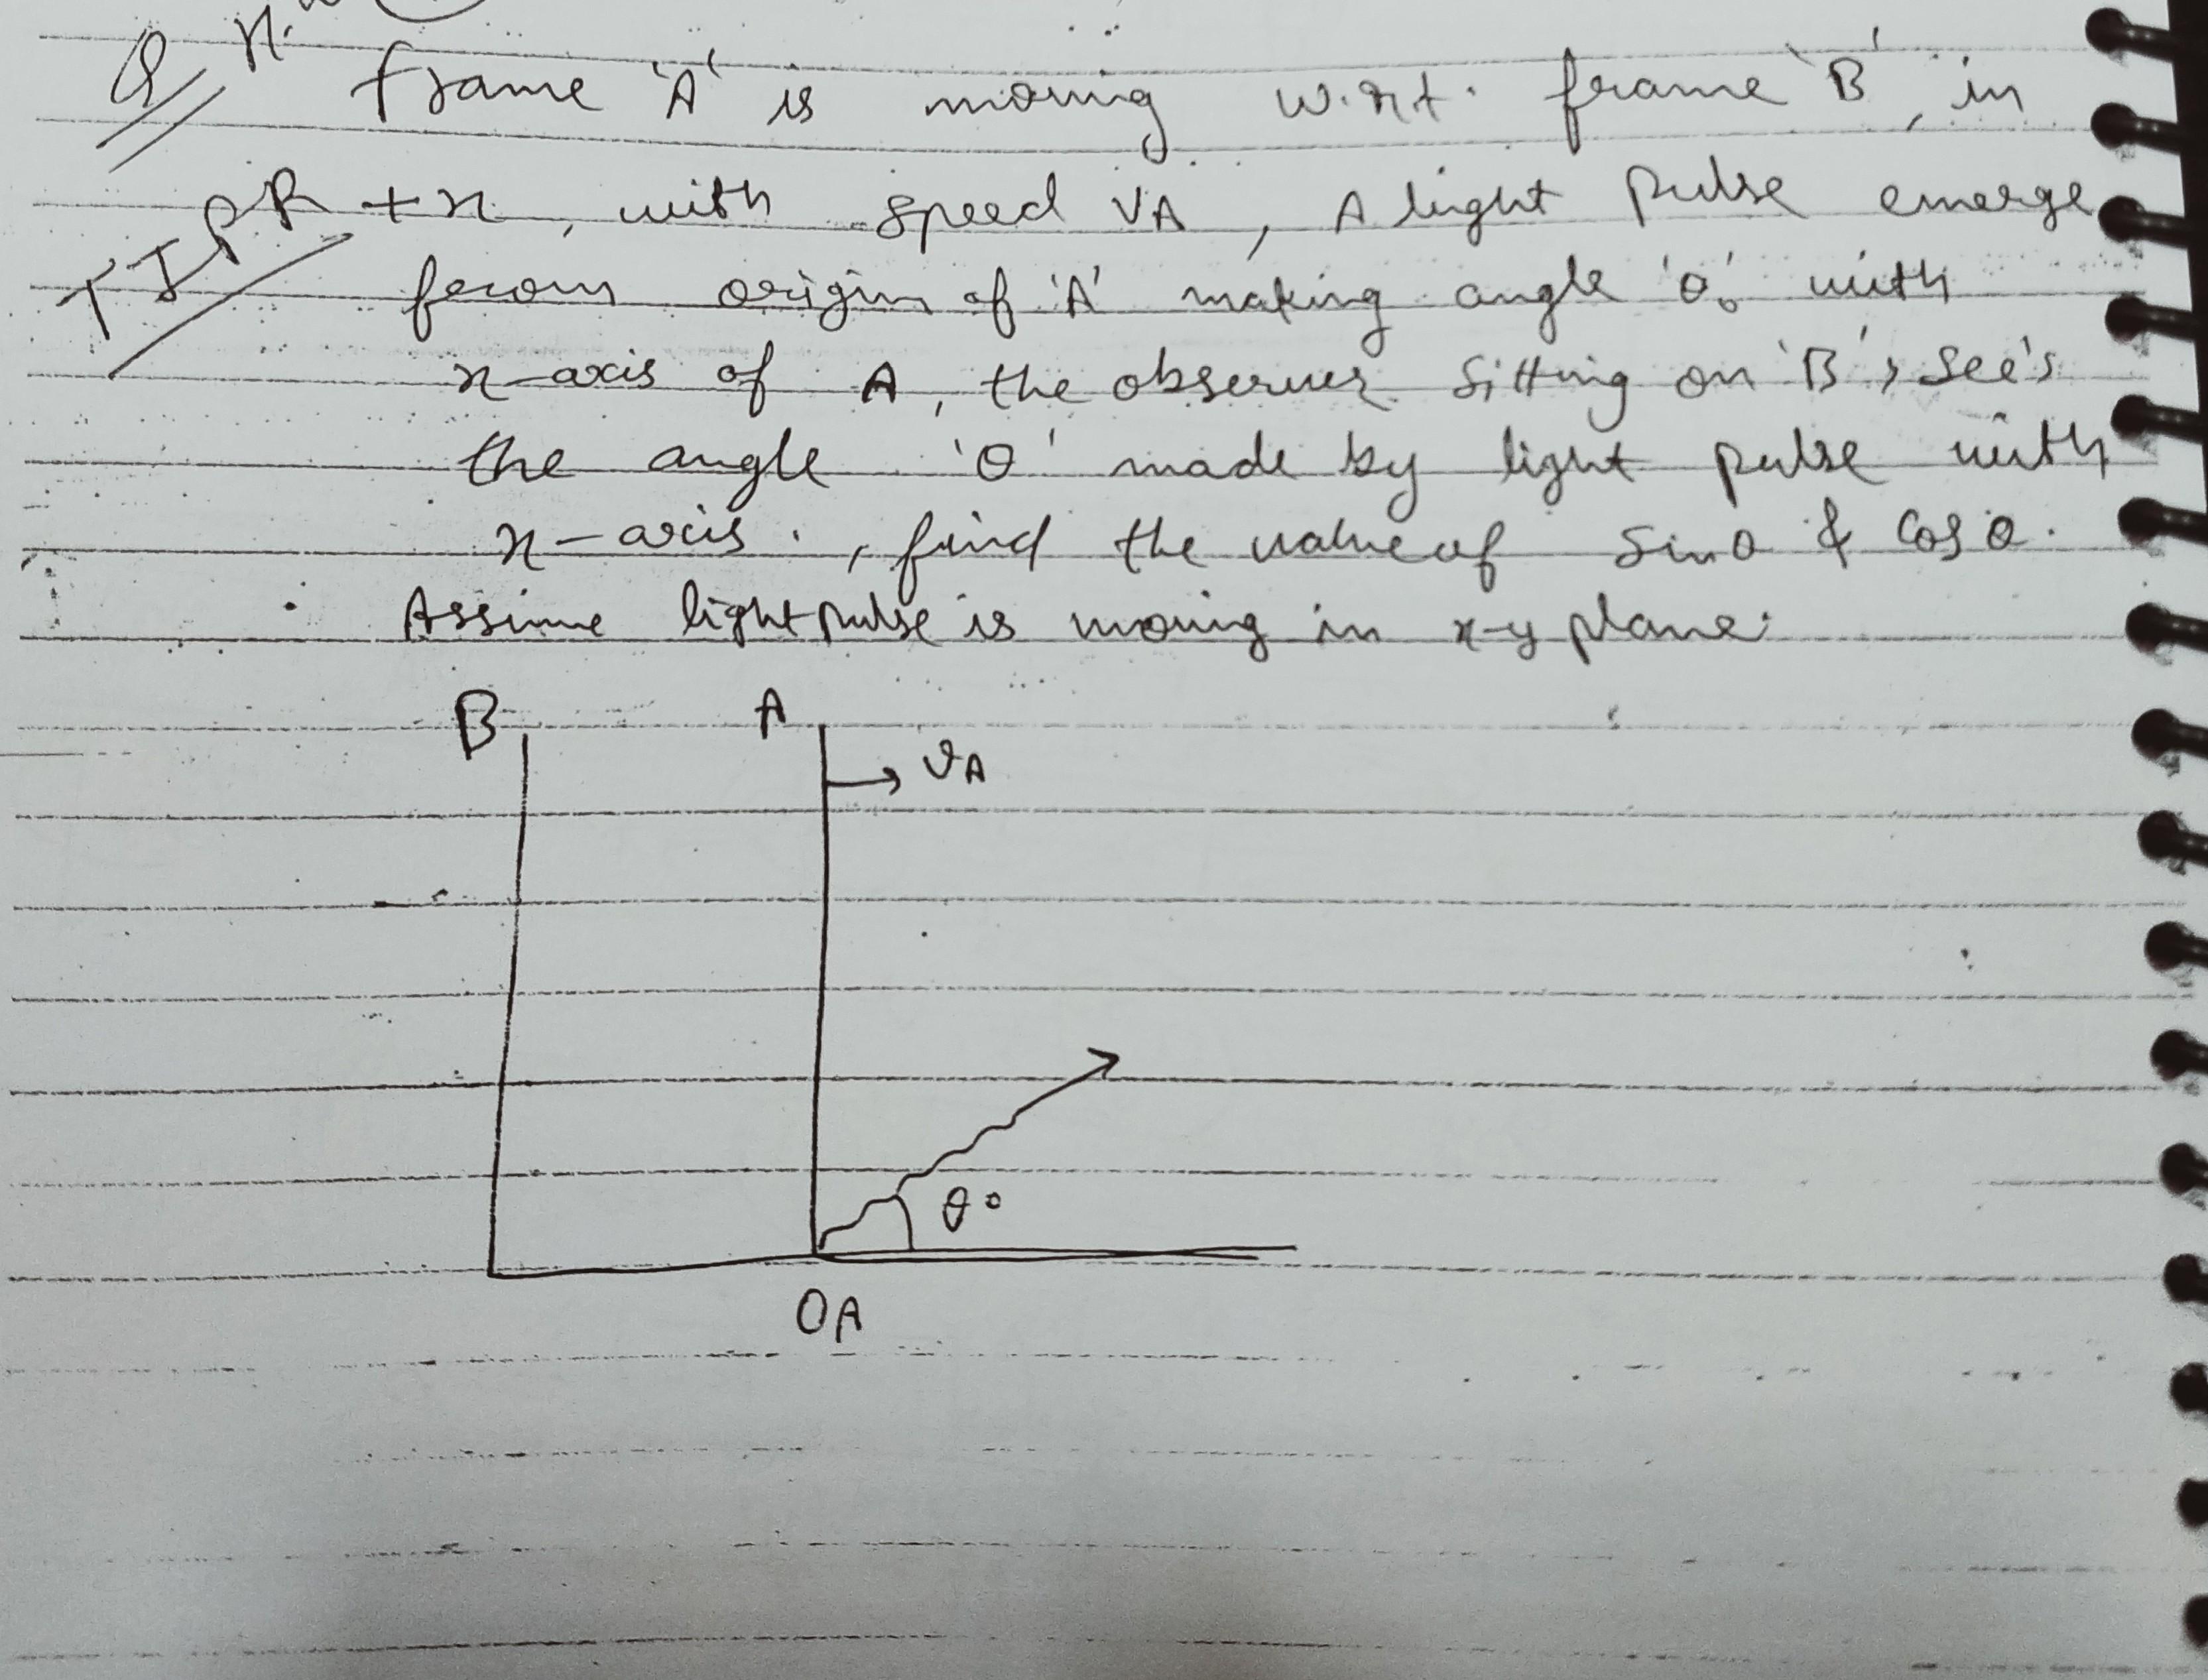 Q
frame 'A' is moving w.r.t. frame 'B', in
TIFR +x, with speed VA, A light pulse emerge
from origin of 'A' making angle 'θ₀' with
x-axis of A, the observer sitting on 'B', see's
the angle 'θ' made by light pulse with
x-axis., find the value of sinθ & cosθ.
Assume light pulse is moving in x-y plane.
B A
vA
θ°
OA